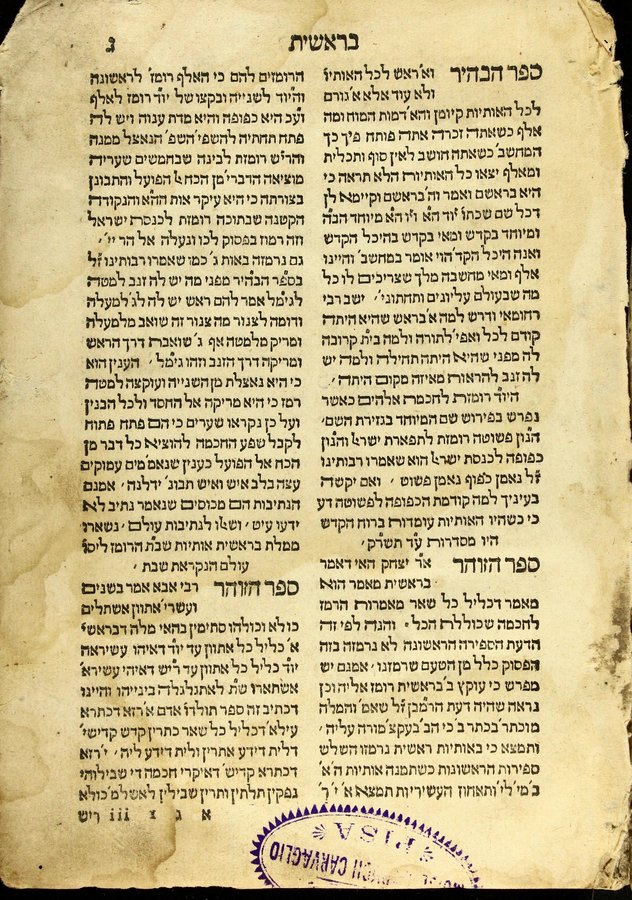 בראשית
ג
ספר הבהיר וא׳ראש לכל האותיו׳
ולא עוד אלא א׳ גורם
לכל האותיות קיומן והא׳ דמות המוח ומה
אלף כשאתה זכרה אתה פותח פיך כך
המחשב׳ כשאתה חושב לאין סוף ותכלית
ומאלף יצאו כל האותיות הלא תראה כי
היא בראשם ואמר וה׳ בראשם וקיימא לן
דכל שם שכתו׳
ומיוחד בקדש ומאי בקדש בהיכל הקדש
ואנה היכל הקד׳ הוי אומר במחשב׳ והיינו
אלף ומאי מחשבה מלך שצריכים לו כל
מה שבעולם עליונים ותחתוני׳ ישב רבי
רחומאי ודרש למה א׳ בראש שהיא היתה
קודם לכל ואפי׳ לתורה ולמה בי״ת קרובה
לה מפני שהיא היתה תחילה ולמה יש
לה זנב להראות מאיזה מקום היתה׳
היו״ד רומזת לחכמת אלהים כאשר
נפרש בפירוש שם המיוחד בגזירת השם׳
הנו״ן פשוטה רומזת לתפארת ישר׳ והנו״ן
כפופה לכנסת ישר׳ הוא שאמרו רבותינו
ז״ל נאמן כפוף נאמן פשוט׳ ואם יקשה
בעיניך למה קודמת הכפופה לפשוטה דע
כי כשהיו האותיות עומדות ברוח הקדש
היו מסדרות עד תשר״ק׳
ספר הזוהר א״ר יצחק האי דאמר
בראשית מאמר הוא
מאמר דכליל כל שאר מאמרות הרמז
לחכמה שכוללת הכל׳ והנה לפי זה
הדעת הספירה הראשונה לא נרמזה בזה
הפסוק כלל מן הטעם שרמזנו׳ אמנם יש
מפרש כי עוקץ ב׳ בראשית רומז אליה וכן
נראה שהיה דעת הרמב״ן ז״ל שאמ׳ והמלה
מוכתר׳ בכתר ב׳ כי הב׳ בעקצ׳ מורה עליה׳
ותמצא כי באותיות ראשית נרמזו השלש
ספירות הראשונות כשתמנה אותיות ה״א
ב׳ מי׳ לי׳ ותאחוז העשיריות תמצא א׳ י׳ ר׳
הרומזים להם כי האלף רומז׳ לראשונה
והיו״ד לשנייה ובקצו של יו״ד רומז לאלף
ועכ״ היא כפופה והיא מדת ענוה ויש לה
פתח תחתיה להשפי׳ השפ׳ הנאצל ממנה
והרי״ש רומזת לבינה שבחמשים שעריה
מוציאה הדברי׳ מן הכח אל הפועל והתבונן
בצורתה כי היא עיקר אות הה״א והנקודה
הקטנה שבתוכה רומזת לכנסת ישראל
וזה רמוז בפסוק לכו ונעלה אל הר יי״׳
גם נרמזה באות ג׳ כמו שאמרו רבותינו ז״ל
בספר הבהיר מפני מה יש לה זנב למטה
לגימ״ל אמר להם ראש יש לה לג׳ למעלה
ודומה לצנור מה צנור זה שואב מלמעלה
ומריק מלמטה אף ג׳ שואבת דרך הראש
ומריקה דרך הזנב וזהו גימ״ל׳ הענין הוא
כי היא נאצלת מן השנייה ועוקצה למטה
רמז כי היא מריקה אל החסד ולכל הבנין
ועל כן נקראו שערים כי הם פתח פתוח
לקבל שפע החכמה להוציא כל דבר מן
הכח אל הפועל כענין שנא׳ מים עמוקים
עצה בלב איש ואיש תבונ׳ ידלנה׳ אמנם
הנתיבות הם מכוסים שנאמר נתיב לא
ידעו עיט׳ ושאלו לנתיבות עולם׳ נשארו
ממלת בראשית אותיות שבת הרומז ליסו׳
עולם הנקראת שבת׳
ספר הזוהר רבי אבא אמר בשנים
ועשרי׳ אתוון אשתלים
כולא וכולהו סתימין בהאי מלה דבראשי׳
א׳ כליל כל אתוון עד יו״ד דאיהו עשיראה
יו״ד כליל כל אתוון עד רי״ש דאיהי עשירא׳
אשתארו ש״ת לאתגלגלה בינייהו והיינו
דכתיב זה ספר תולדו׳ אדם א׳ רזא דכתרא
עילא׳ דכליל כל שאר כתרין קדש קדישי׳
דלית דידע אתרין ולית דידע ליה׳ י׳ רזא
דכתרא קדיש׳ דאיקרי חכמה די שבילוהי
נפקין תלתין ותרין שבילין לאשלמ׳ כולא
א ג צ iii ריש
PISA
CARVAGLIO